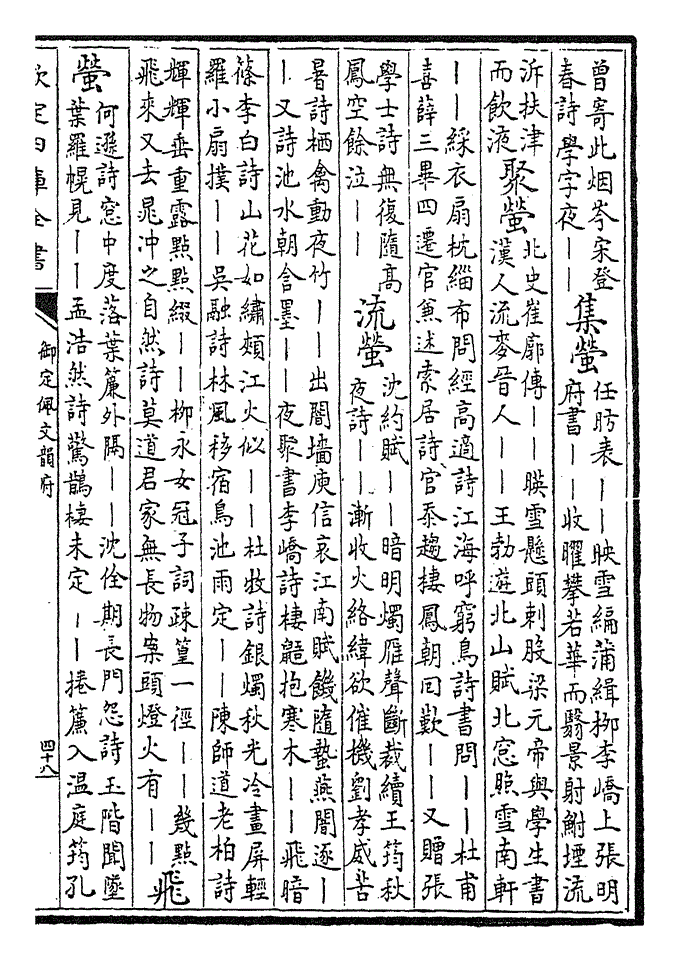 曾寄此烟岑宋登
春詩 學字夜——
集螢
任昉表——映雪編蒲緝栁李嶠上張明
府書——收曜攀若華而翳景射鮒堙流
泝扶津
而飲液
聚螢
北史崔廓傳——暎雪懸頭刺股梁元帝與學生書
漢人流麥晉人——王勃遊北山賦北窓照雪南軒
——綵衣扇枕緇布問經高適詩江海呼窮鳥詩書問——杜甫
喜薛三畢四遷官兼述索居詩官忝趨棲鳳朝回歎——又贈張
學士詩 無復隨髙
鳳空餘泣——
流螢
沈約賦——暗明燭雁聲斷裁續王筠秋
夜詩——漸收火絡緯欲催機劉孝威苦
暑詩栖禽動夜竹——出闇墻庾信哀江南賦饑隨蟄燕闇逐—
—又詩池水朝含墨——夜聚書李嶠詩棲鼯抱寒木——飛暗
篠李白詩山花如繡頰江火似——杜牧詩銀燭秋光冷畫屏輕
羅小扇撲——吳融詩林風移宿鳥池雨定——陳師道老柏詩
輝輝垂重露㸃㸃綴——栁永女冠子詞疎篁一徑——幾㸃
飛來又去晁冲之自然詩莫道君家無長物案頭燈火有——
飛
螢
何遜詩窓中度落葉簾外隔——沈佺期長門怨詩玉階聞墜
葉羅幌見——孟浩然詩驚鵲棲未定——捲簾入温庭筠孔
欽定四庫全書
御定佩文韻府
四十八